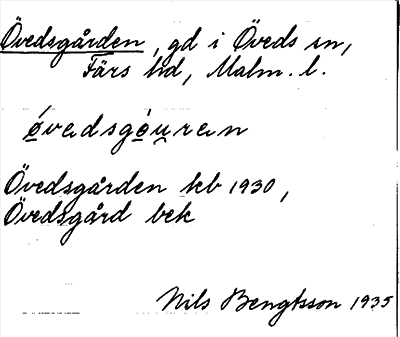 Övedsgården, gd i Öveds sn,
Färs hd, Malm. l.
ǿvadsgǿu̯ran
Övedsgården kb 1930,
Övedsgård bek
Nils Bengtsson 1935